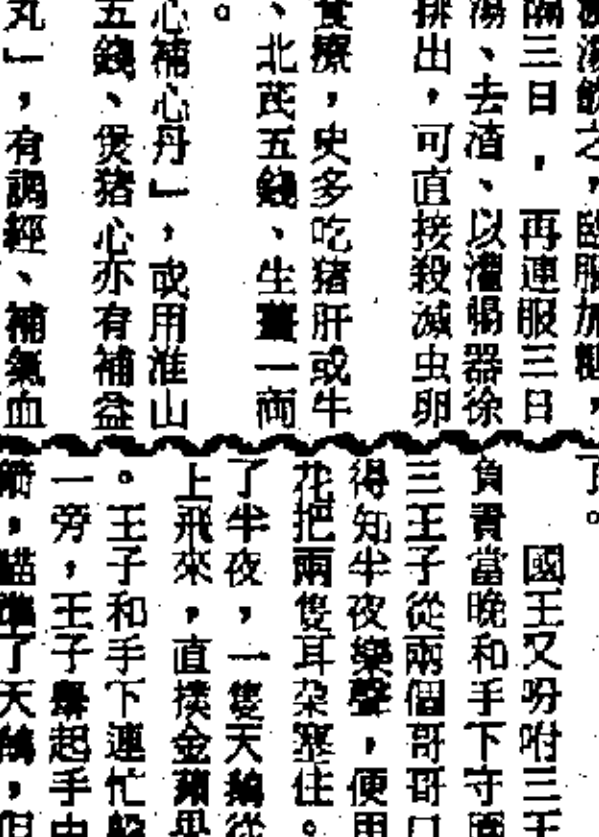 湯飲之，臨服加
隔三日，再連服三日
湯、去渣、以灌腸器徐
排出，可直接殺滅虫卵
食療，史多吃猪肝或牛
、北芪五錢、生薑一兩
。
心補心丹」，或用淮山
五錢、煲猪心亦有補益
丸」，有調經、補氣血
了。
國王又吩咐三王
負責當晚和手下守
三王子從兩個哥哥口
得知半夜樂聲，便用
花把兩隻耳朶塞住。
了半夜，一隻天鵝從
上飛來，直撲金蘋果
。王子和手下連忙躱
一旁，王子舉起手中
箭，瞄準了天鵝，但